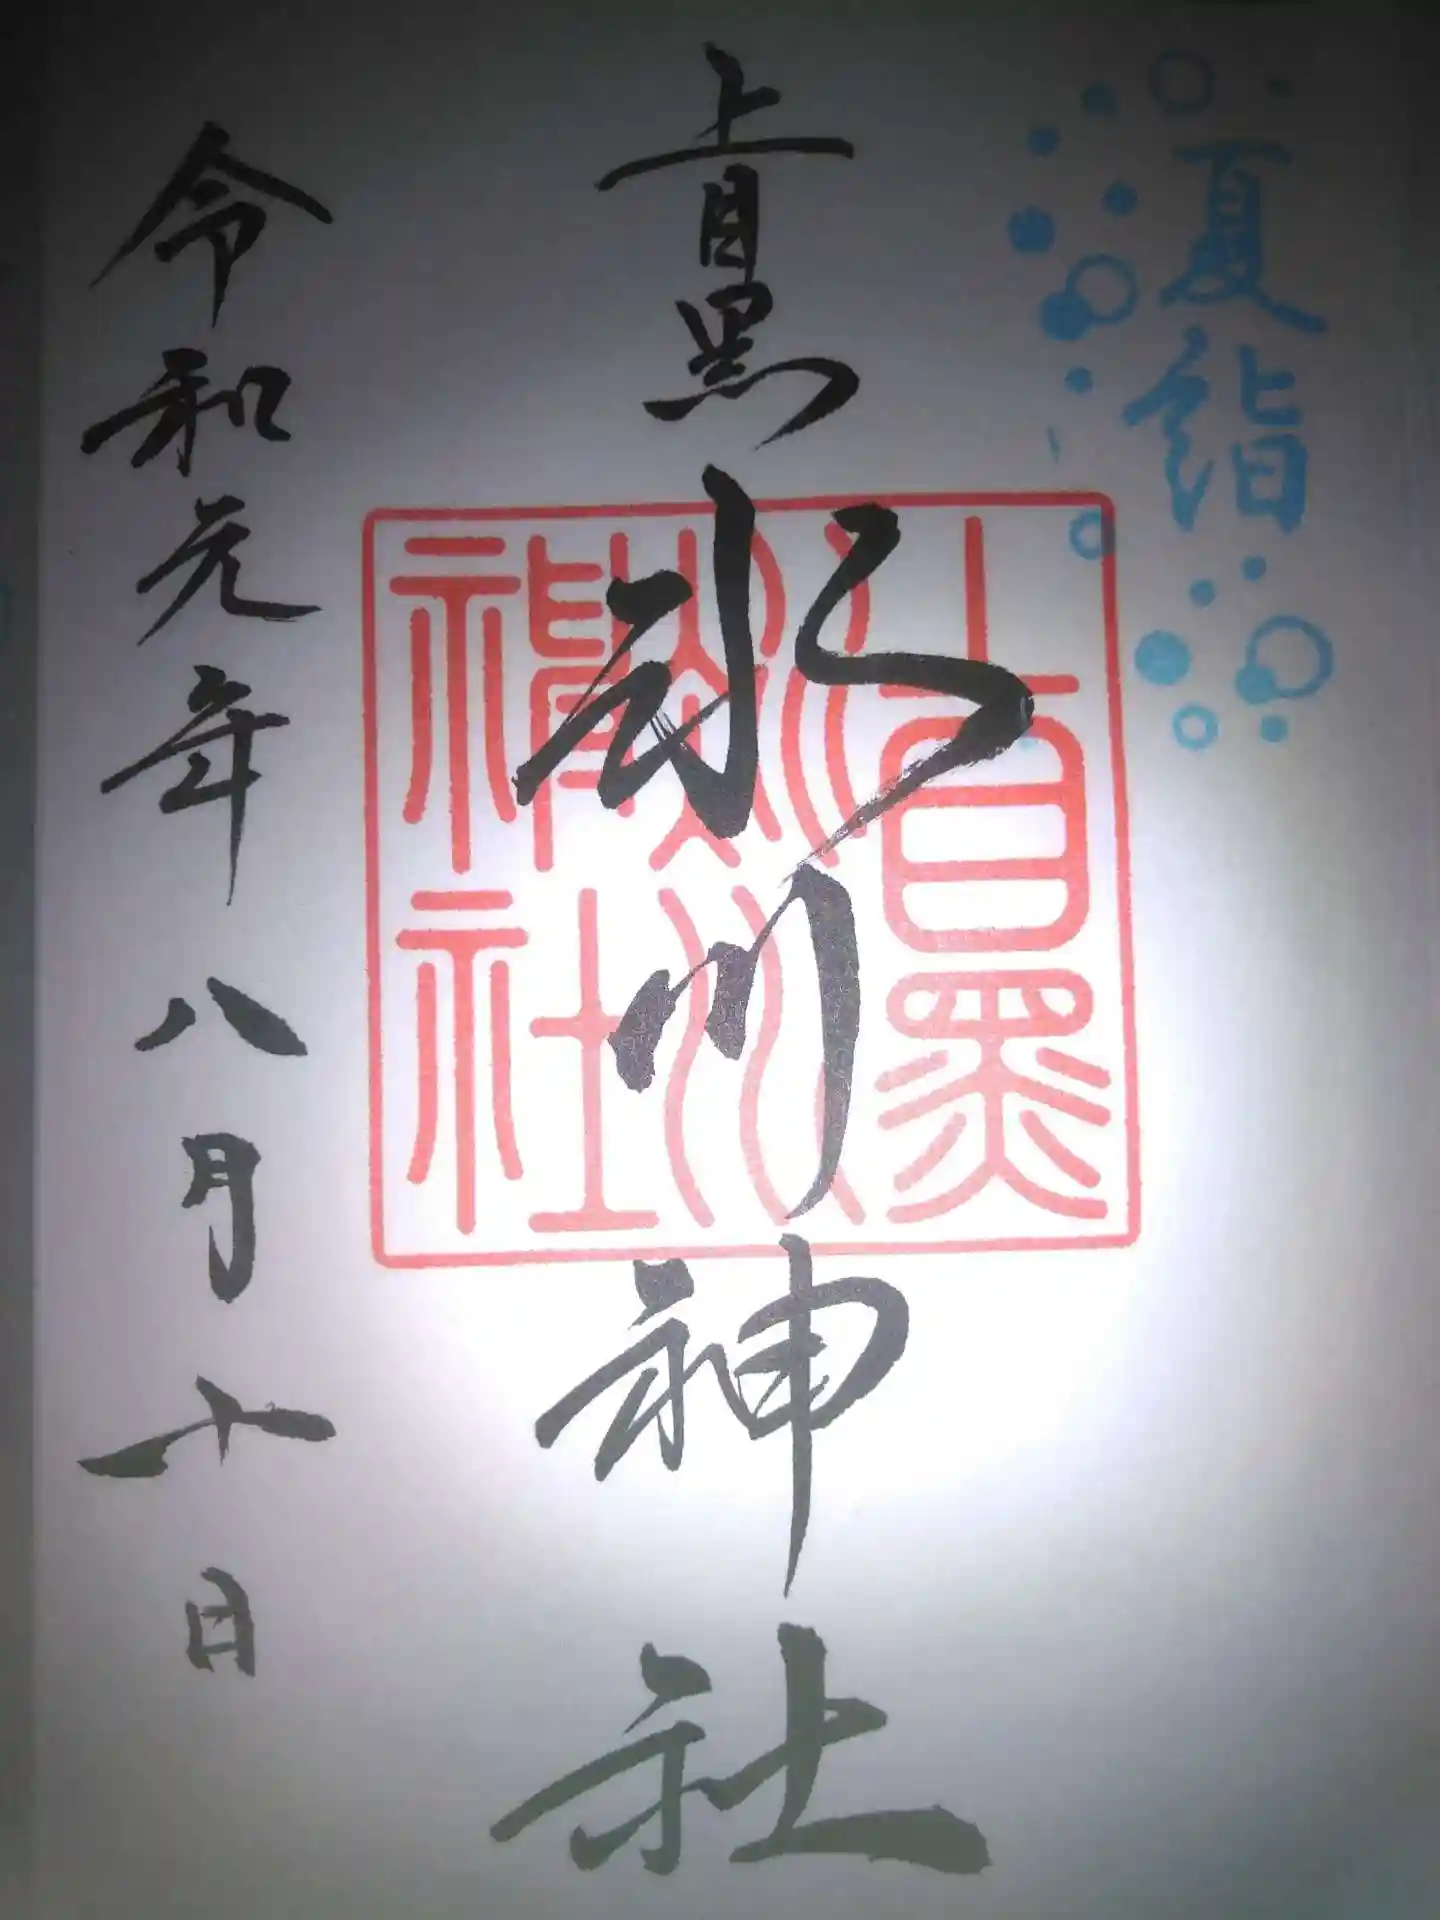 夏詣
上目黒氷川神社
上目黒
氷川
神社
令和元年八月十日